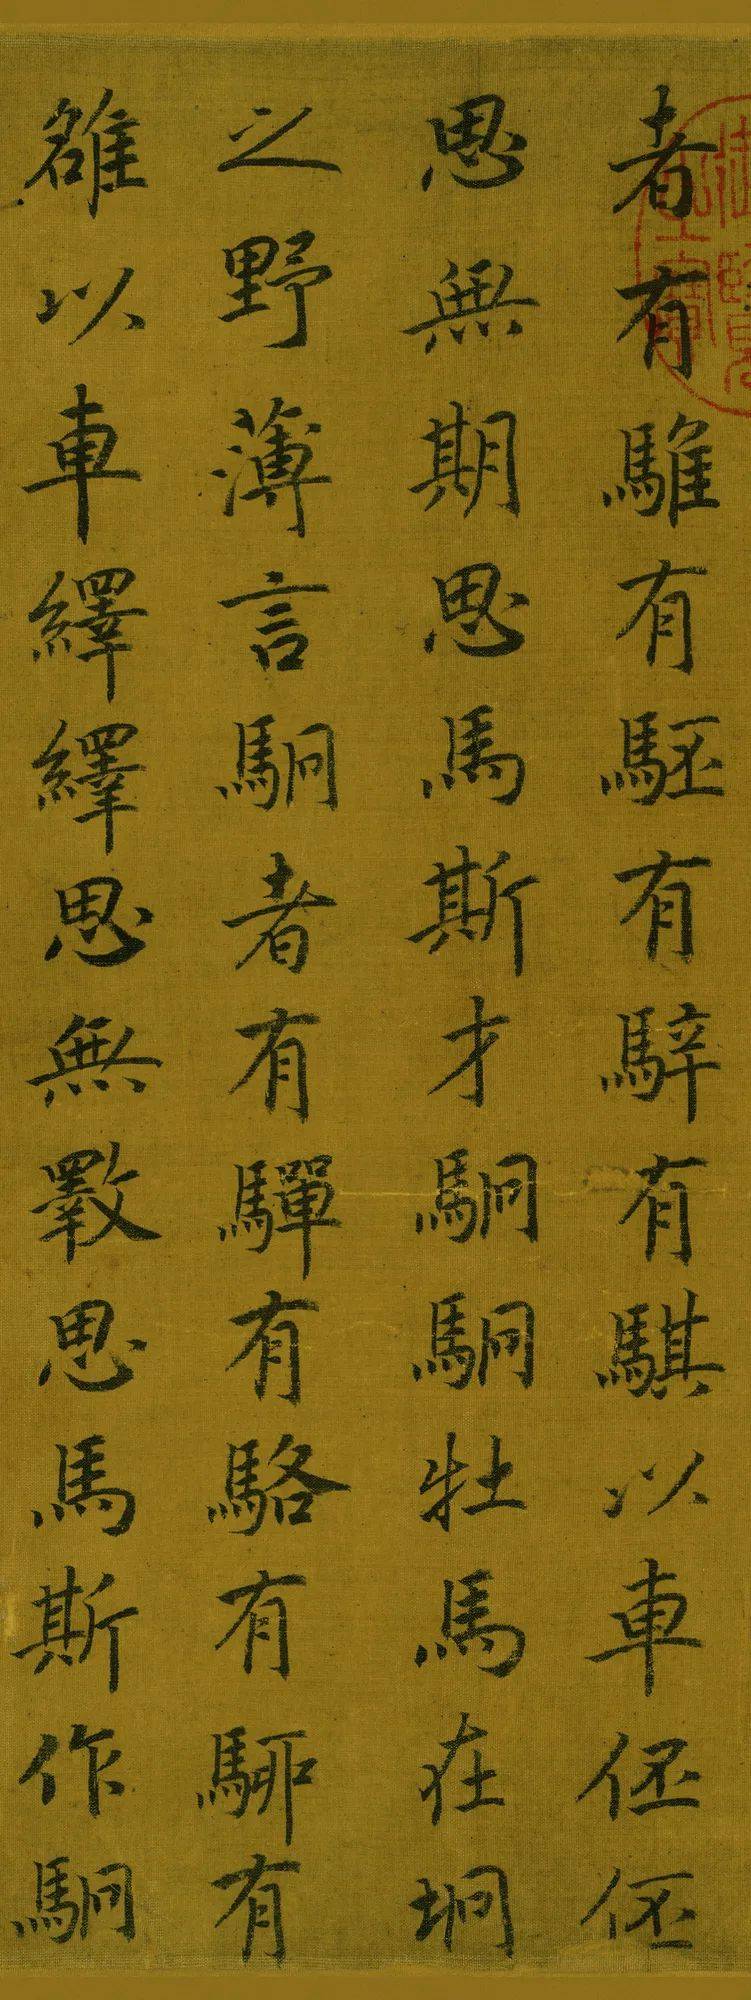 者有騅有駓有騂有騏以車伾伾
思無期思馬斯才駉駉牡馬在坰
之野薄言駉者有驒有駱有駵有
雒以車繹繹思無斁思馬斯作駉